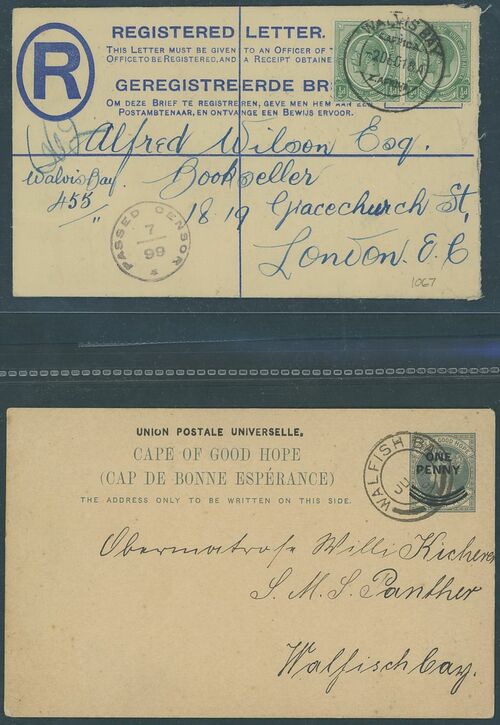 REGISTERED LETTER.
THIS LETTER MUST BE GIVEN TO AN OFFICER OF T
OFFICE TO BE REGISTERED, AND A RECEIPT OBTAINE
R
GEREGISTREERDE BR
OM DEZE BRIEF TE REGISTREREN, GEVE MEN HEM AAN E
POSTAMBTENAAR, EN ONTVANGE EEN BEWIJS ERVOOR.
WALVIS BAY
½d
½d
Alfred Wilson Esq.
Walvis Bay
Bookseller
455
18 19 Gracechurch St,
London. E.C
PASSED CENSOR
7
99
1067
UNION POSTALE UNIVERSELLE,
CAPE OF GOOD HOPE
(CAP DE BONNE ESPÉRANCE)
THE ADDRESS ONLY TO BE WRITTEN ON THIS SIDE.
WALFISH BAY
OF GOOD HOPE
ONE
PENNY
Obermatrose Willi Kicherer
S. M. S. Panther
Walfischbay.